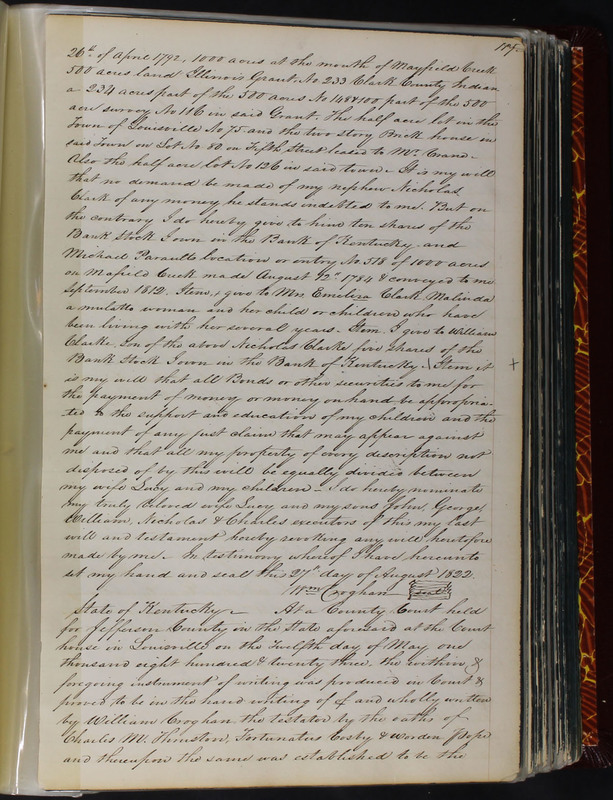 26th of April 1792, 1000 acres at the mouth of Mayfield Creek
500 acres land Illinois Grant, No 233 Clark County Indian
a 234 acres part of the 500 acres No 148 & 100 part of the 500
acre survey No 116 in said Grant. The half acre lot in the
Town of Louisville No 75 and the two story Brick house in
said Town on Lot No 80 on Fifth Street leased to Mr. Crane.
Also the half acre lot No 126 in said town. It is my will
that no demand be made of my nephew Nicholas
Clark of any money he stands indebted to me. But on
the contrary I do hereby give to him ten shares of the
Bank Stock I own in the Bank of Kentucky and
Michael Paraults location or entry No 518 of 1000 acres
on Mafield Creek made August 12th 1784 & conveyed to me
September 1812. Item, I give to Mrs Emeliza Clark Malinda
a mulatto woman and her child or children who have
been living with her several years. Item. I give to William
Clarke, Son of the above Nicholas Clarke five shares of the
Bank Stock I own in the Bank of Kentucky. Item it
is my will that all Bonds or other securities to me for
the payment of money or money on hand be appropria-
ted to the support and education of my children and the
payment of any just claim that may appear against
me and that all my property of every description not
disposed of by this will be equally divided between
my wife Lucy and my children – I do hereby nominate
my truly beloved wife Lucy and my sons John, George,
William, Nicholas & Charles executors of this my last
will and testament hereby revoking any will heretofore
made by me. In testimony whereof I have hereunto
set my hand and seal this 27th day of August 1822.
Wm Croghan seal
State of Kentucky At a County Court held
for Jefferson County in the State aforesaid at the Court
house in Louisville on the twelfth day of May one
thousand eight hundred & twenty three, the within &
foregoing instrument of writing was produced in Court &
proved to be in the hand writing of & and wholly written
by William Croghan the testator by the oaths of
Charles M. Thruston, Fortunatus Cosby & Worden Pope
and thereupon the same was established to be the